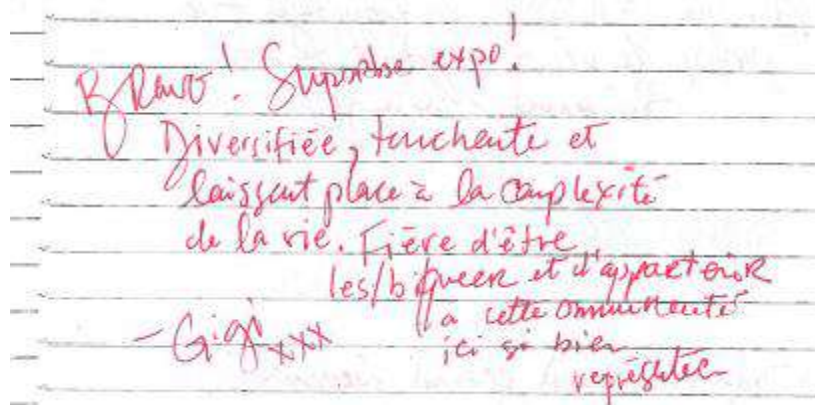 BRavo! Superbe expo!
Diversifiée, touchante et
laissant place à la complexité
de la vie. Fière d'être
les/bi/queer et d'appartenir
à cette communauté
ici si bien
représentée
- Gigi xxx